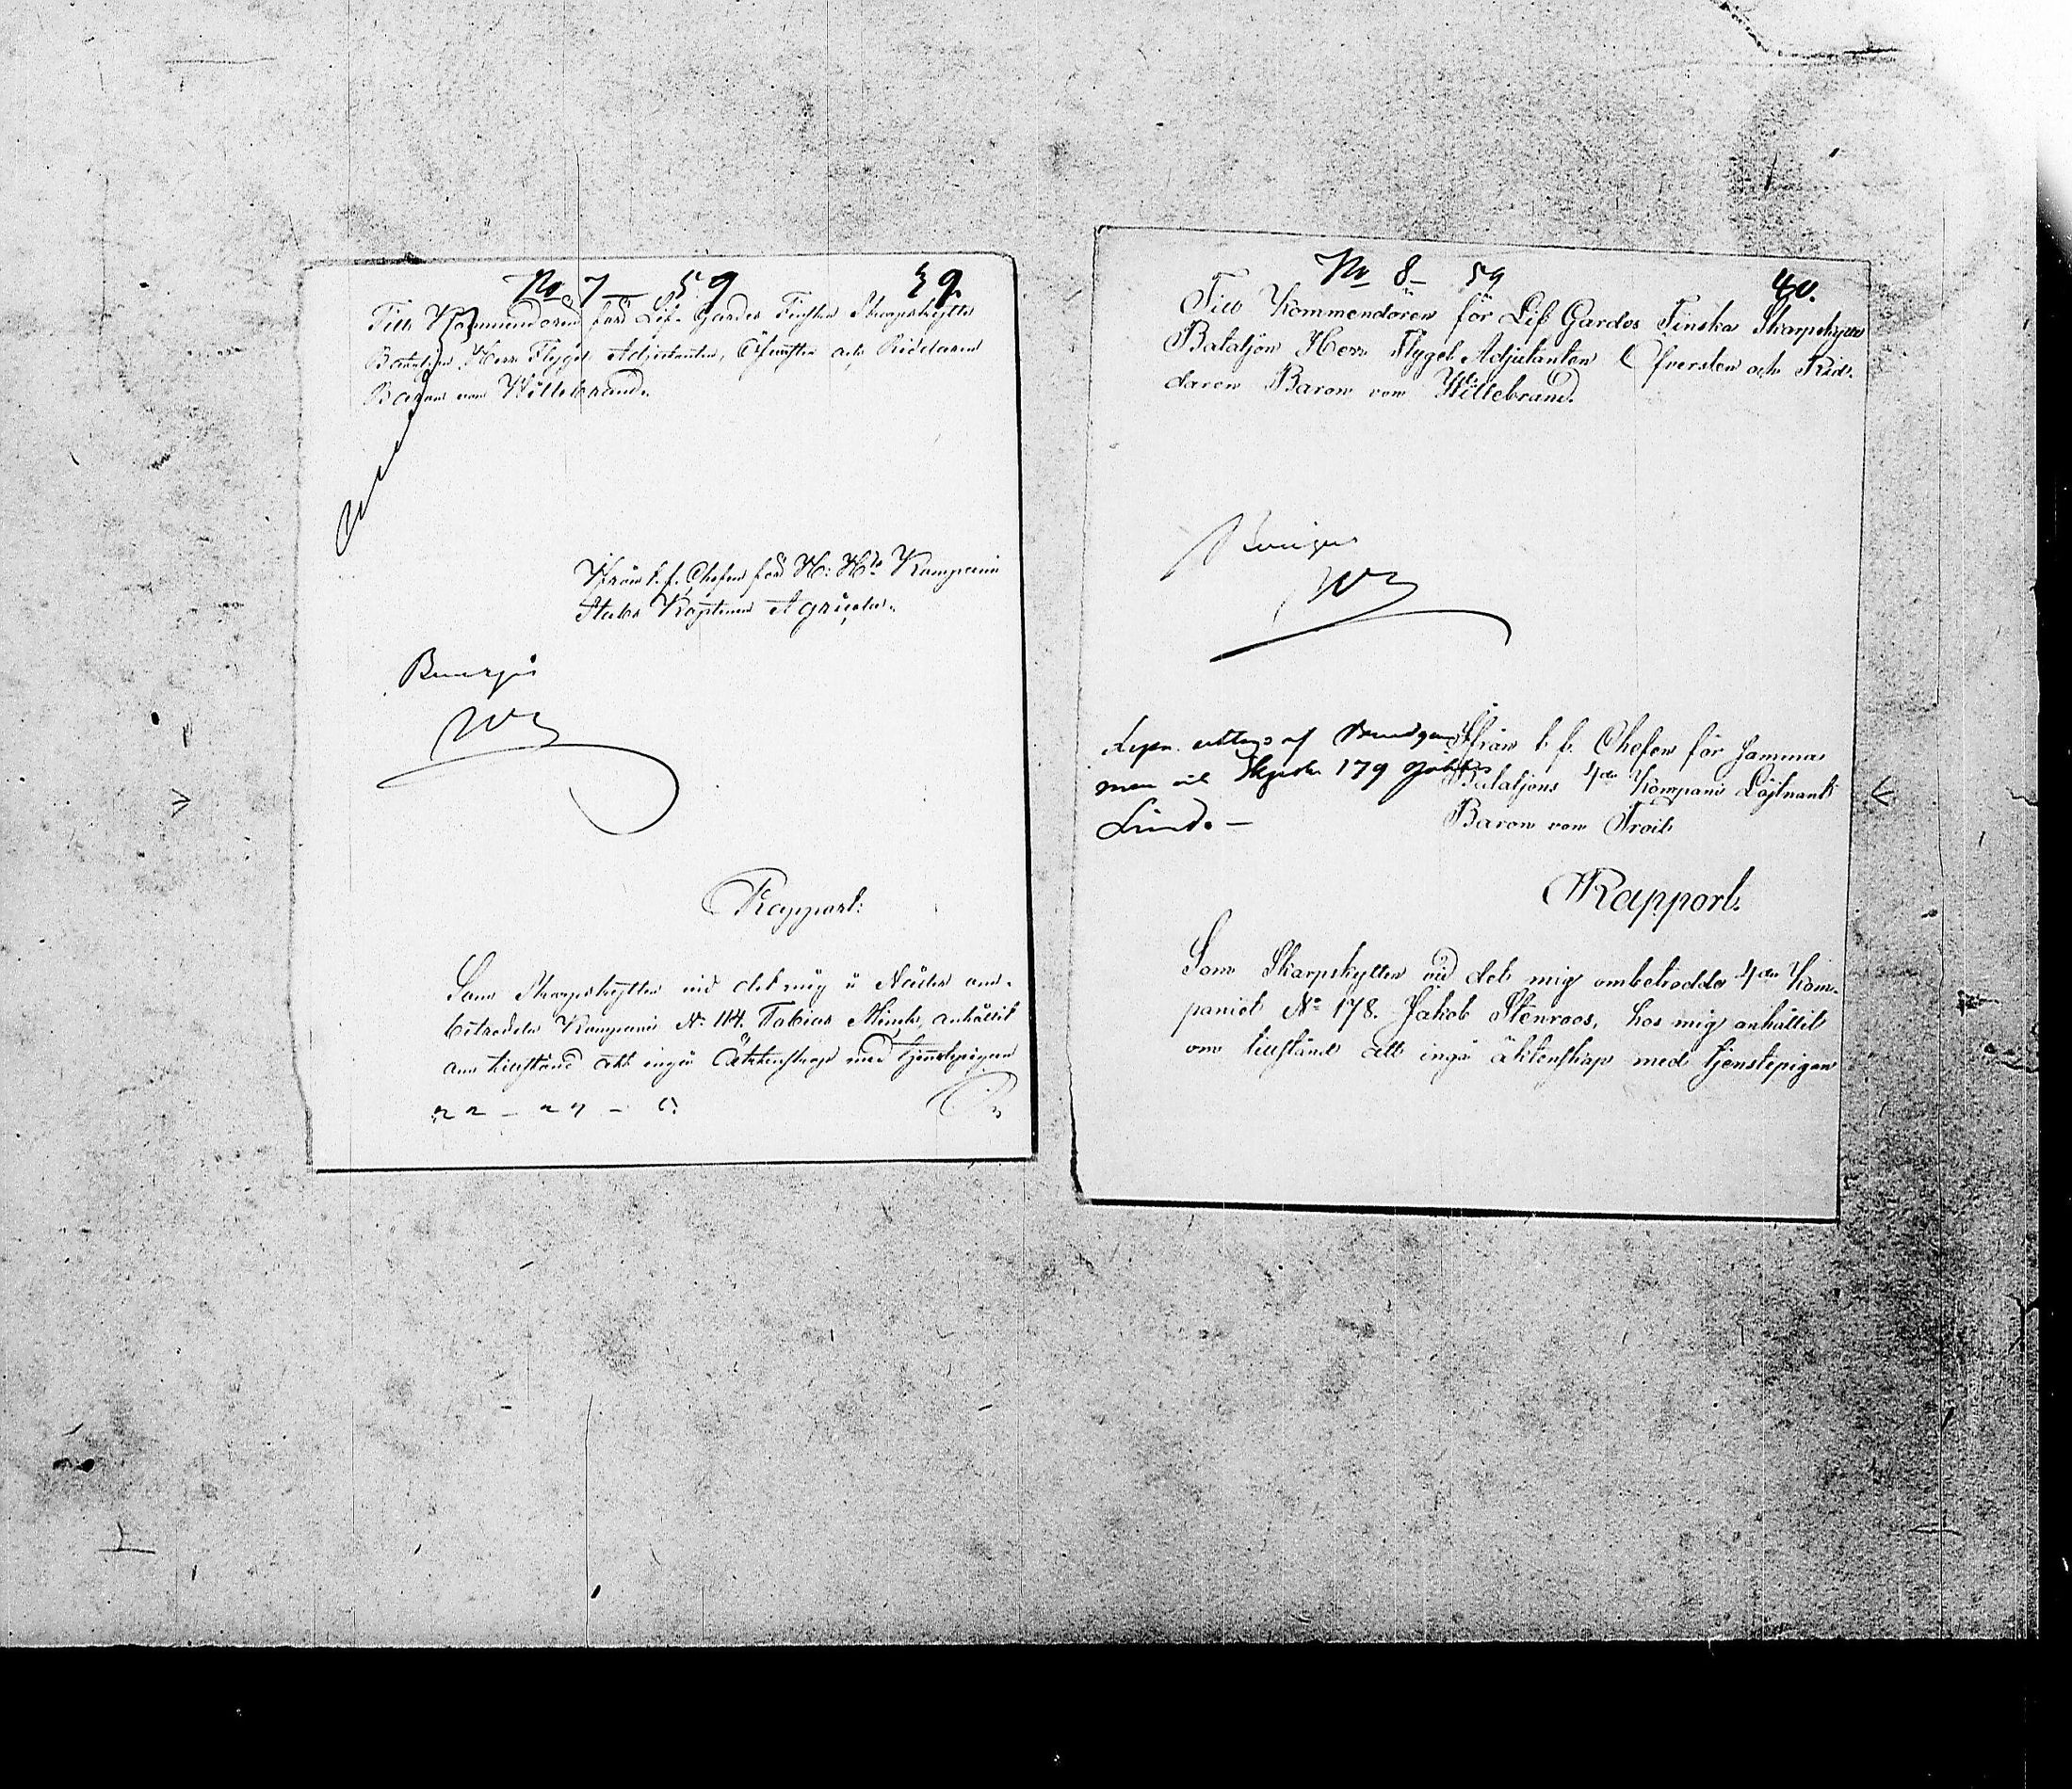 No 7 — 59 39.
Till Kommendören för Lif-Gardes Finska Skarpskytte
Bataljon Herr Flygel Adjutanten, Öfversten och Riddaren
Baron von Willebrand.
Från t. f. Chefen för H: Hts Kompani
Stabs Kaptenen Agricola.
Beviljas
Rapport:
Som Skarpskytten vid det mig i Nåder an-
betrodda Kompani No 114. Tobias anhållit
om tillstånd att ingå Äktenskap med tjenstepigan
No 8 — 59 40.
Till Kommendören för Lif Gardes Finska Skarpskytte
Bataljon Herr Flygel Adjutanten Öfversten och Rid-
daren Baron von Willebrand.
Beviljas
Från t. f. Chefen för samma
Bataljons 4de Kompani Löjtnant
Baron von Troil
179
Lind. —
Rapport.
Som Skarpskytten vid det mig ombetrodda 4de Kom-
paniet No 178. Jakob Stenroos, hos mig anhållit
om tillstånd att ingå äktenskap med tjenstepigan